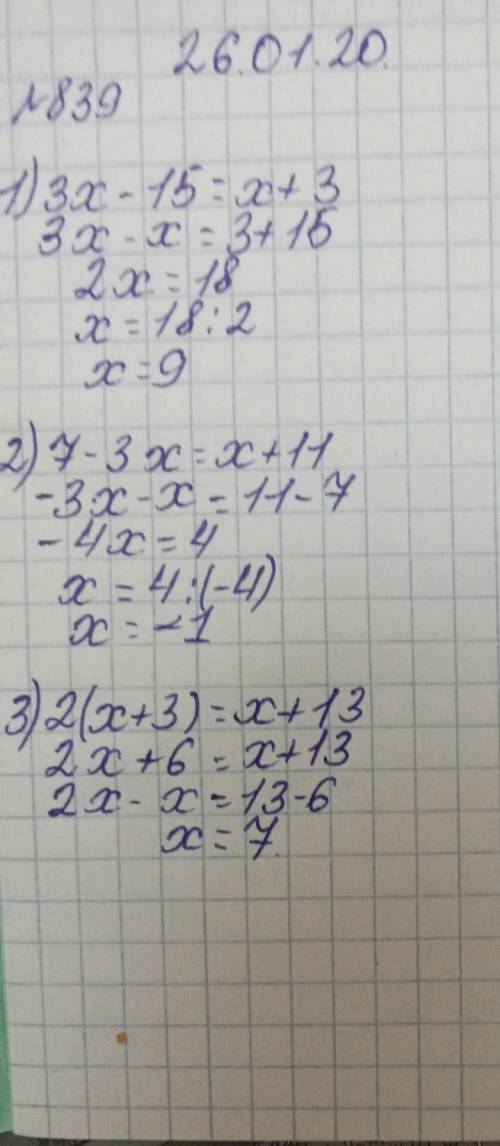 26.01.20.
№839
1) 3x - 15 = x + 3
3x - x = 3 + 15
2x = 18
x = 18 : 2
x = 9
2) 7 - 3x = x + 11
-3x - x = 11 - 7
-4x = 4
x = 4 : (-4)
x = -1
3) 2(x+3) = x + 13
2x + 6 = x + 13
2x - x = 13 - 6
x = 7.